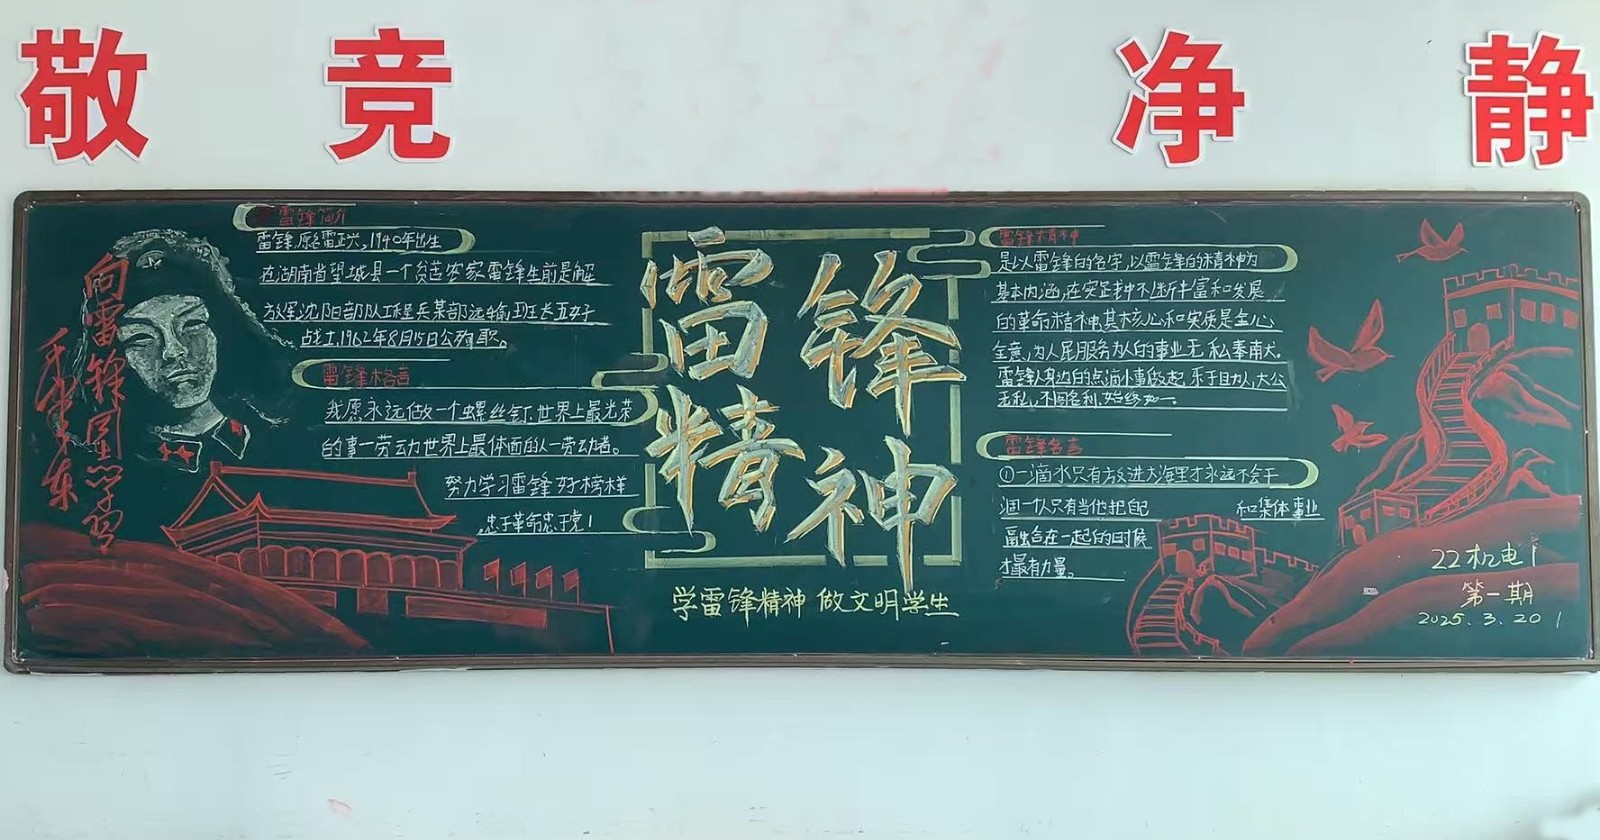 敬 竞 净 静
向雷锋同志学习
毛泽东
雷锋简介
雷锋,原名雷正兴,1940年出生
在湖南省望城县一个贫苦农家雷锋生前是解
放军沈阳部队工程兵某部运输班班长五好
战士,1962年8月15日公殉职。
雷锋格言
我愿永远做一个螺丝钉,世界上最光荣
的事一劳动世界上最体面的人一劳动者。
努力学习雷锋好榜样
忠于革命忠于党!
雷锋
精神
学雷锋精神 做文明学生
雷锋精神
是以雷锋的名字,以雷锋的精神为
基本内涵,在实践中不断丰富和发展
的革命精神,其核心和实质是全心
全意,为人民服务,为人的事业无私奉献。
雷锋从身边的点滴小事做起,乐于助人,大公
无私,不图名利,始终如一。
雷锋名言
①一滴水只有放进大海里才永远不会干
涸一个人只有当他把自己 和集体事业
融合在一起的时候
才最有力量。
22机电1
第一期
2025.3.20